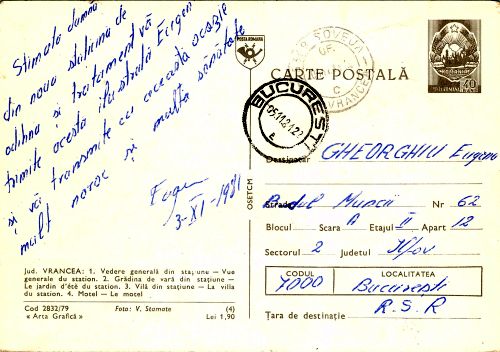 Stimată doamnă
din noua stațiune de
odihnă și tratament vă
trimite această ilustrată Eugen
și vă transmite cu această ocazie
mult noroc și multă sănătate
Eugen
3-XI-1981
Jud. VRANCEA: 1. Vedere generală din stațiune — Vue
generale du station. 2. Grădina de vară din stațiune —
Le jardin d'été du station. 3. Vilă din stațiune — La villa
du station. 4. Motel — Le motel
Cod 2832/79 Foto: V. Stamate (4)
« Arta Grafică » Lei 1,90
OSETCM
POSTA ROMANA
SOVEJA
VRANCEA
C
CARTE POSTALĂ
40
BUCUREȘTI
05.11.81.22
Destinatar GHEORGHIU Eugenia
Strada Bvdul Muncii Nr 62
Blocul Scara A Etajul II Apart 12
Sectorul 2 Județul Ilfov
CODUL LOCALITATEA
7000 București
R.S.R
Țara de destinație